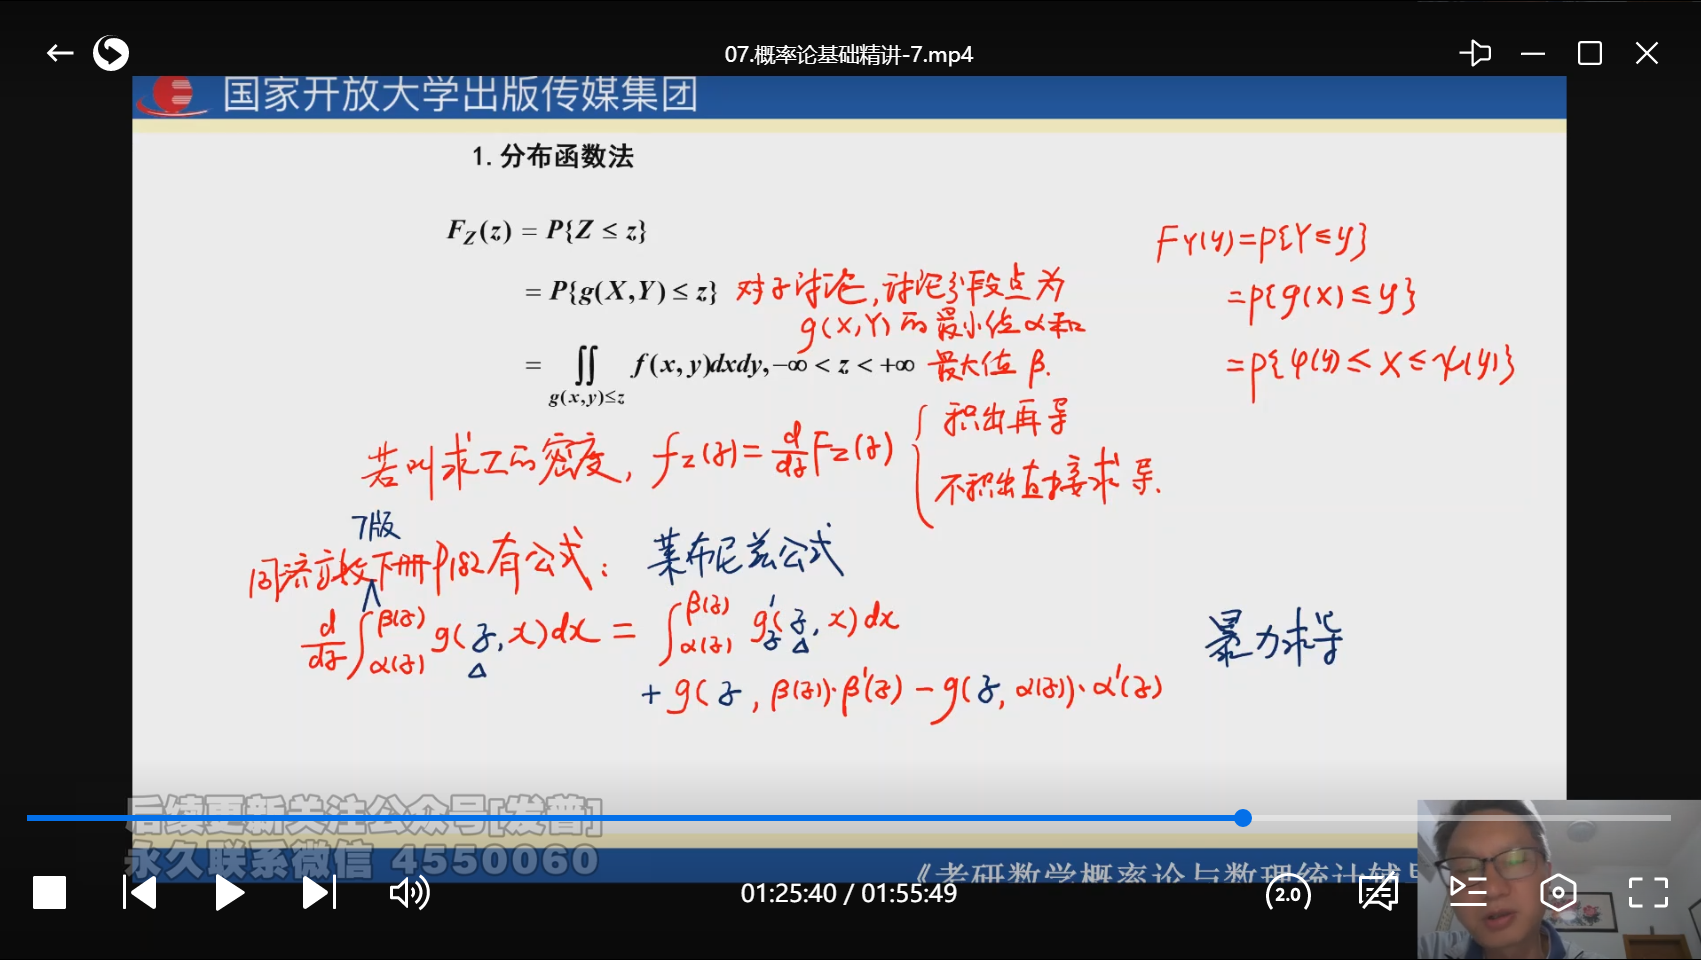 07.概率论基础精讲-7.mp4
国家开放大学出版传媒集团
1. 分布函数法
F_Z(z) = P{Z ≤ z}
= P{g(X,Y) ≤ z} 对z讨论,讨论分段点为
g(X,Y)的最小值α和
= ∬_{g(x,y)≤z} f(x,y)dxdy, -∞ < z < +∞ 最大值β.
F_Y(y)=P{Y≤y}
=P{g(X)≤y}
=P{φ(y)≤X≤ψ(y)}
若叫求Z的密度, f_Z(z)=d/dz F_Z(z) { 积出再导
不积出直接求导.
7版
同济高数下册P182有公式: 莱布尼兹公式
d/dz ∫_{α(z)}^{β(z)} g(z,x)dx = ∫_{α(z)}^{β(z)} g'_z(z,x)dx
+ g(z,β(z))·β'(z) - g(z,α(z))·α'(z)
暴力求导
后续更新关注公众号[发普]
永久联系微信 4550060
《考研数学概率论与数理统计辅导
01:25:40 / 01:55:49
2.0